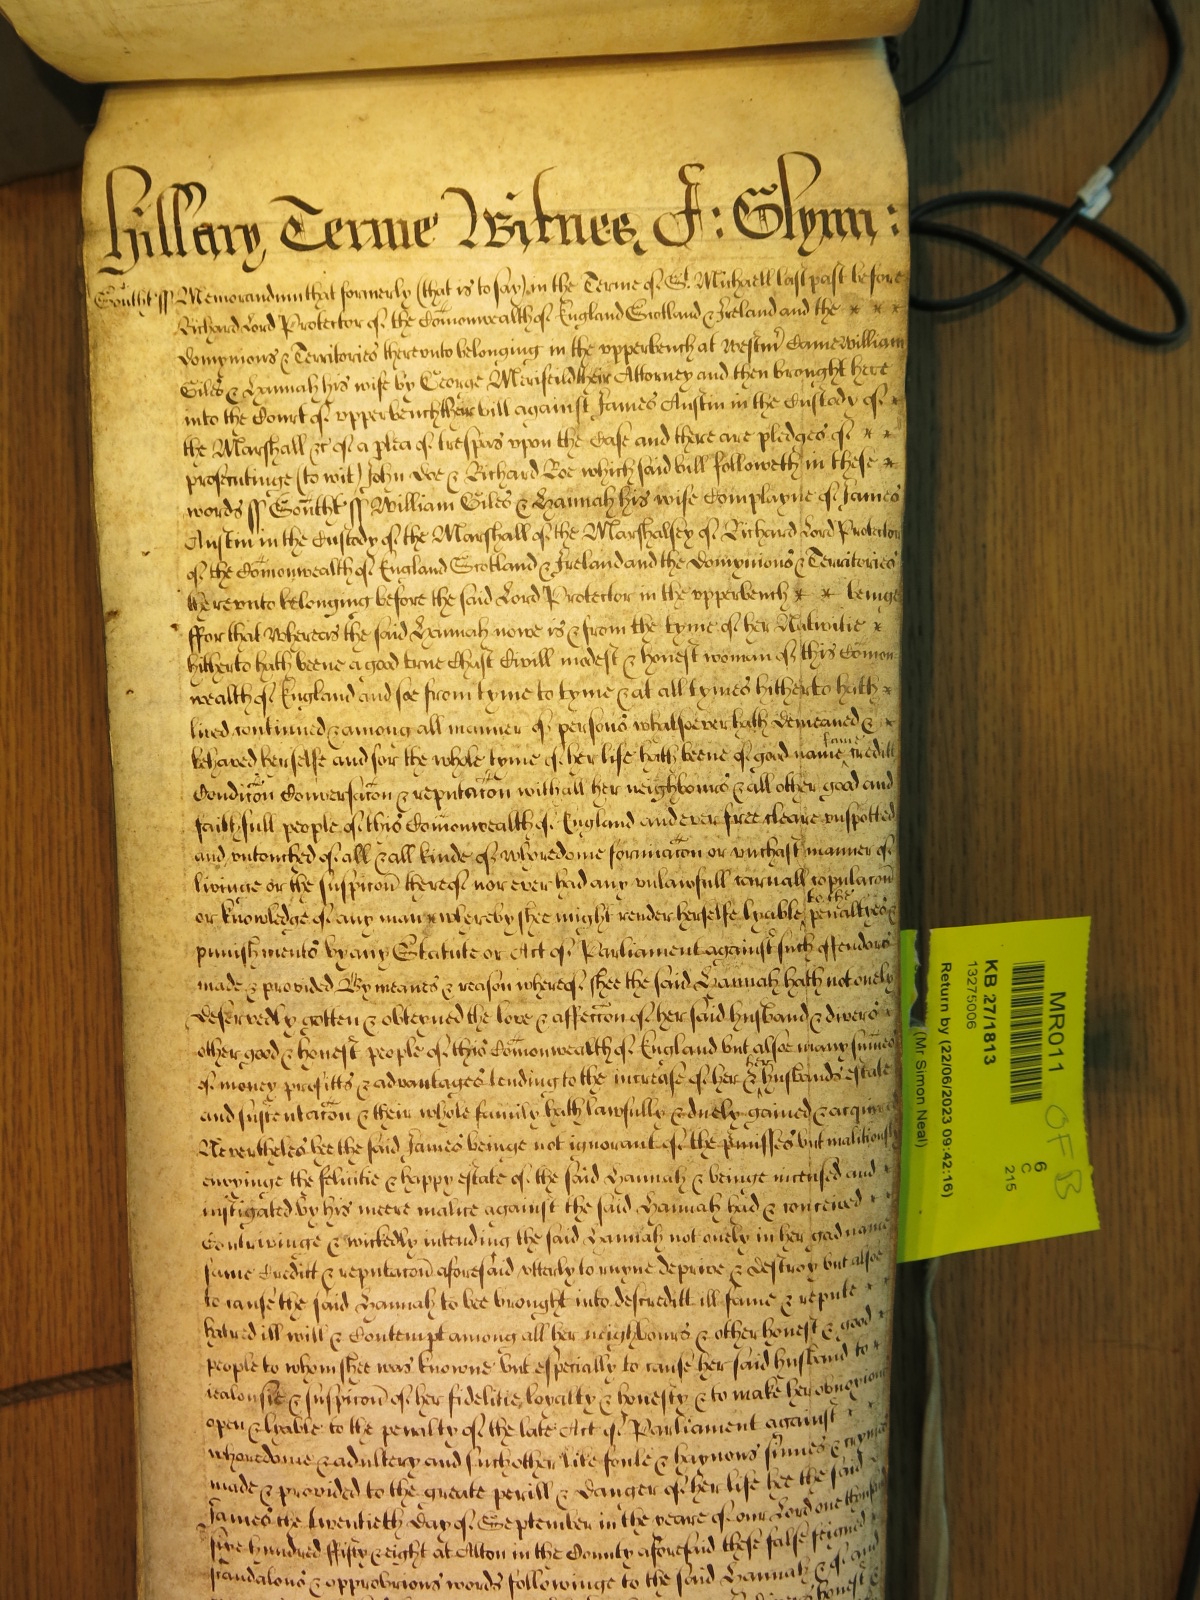 Hillary Terme Witnes J: Glynn:
Southt ss Memorandum that formerly (that is to say) in the Terme of St. Michaell last past before
Richard Lord Protector of the Comonwealth of England Scotland & Ireland and the
Domynions & Territories therevnto belonging in the vpperbench at Westmr Came William
Giles & Hannah his wife by George Merifeild their Attorney and then brought here
into the Court of vpperbench their bill against James Austin in the Custody of
the Marshall &c of a plea of trespas vpon the Case and there are pledges of
prosecutinge (to wit) John Doe & Richard Roe which said bill followeth in these
words ss Southt ss William Giles & Hannah his wife Complayne of James
Austin in the Custody of the Marshall of the Marshalsey of Richard Lord Protector
of the Comonwealth of England Scotland & Ireland and the Domynions & Territories
therevnto belonging before the said Lord Protector in the vpperbench beinge
ffor that Whereas the said Hannah nowe is & from the tyme of her Nativitie
hitherto hath beene a good true Chast Civill modest & honest woman of this Comon
wealth of England and soe from tyme to tyme & at all tymes hitherto hath
lived continued & among all manner of persons whatsoever hath demeaned &
behaved herselfe and for the whole tyme of her life hath beene of good name fame creditt
Condicon Conversacon & reputacon with all her neighbours & all other good and
faithfull people of this Comonwealth of England and ever free cleare vnspotted
and vntouched of all & all kinde of whoredome fornicacon or vnchast manner of
livinge or the suspicon thereof nor ever had any vnlawfull carnall copulacon
or knowledge of any man whereby shee might render herselfe lyable to the penaltyes &
punishments by any Statute or Act of Parliament against such offendors
made & provided By meanes & reason whereof shee the said Hannah hath not onely
deservedly gotten & obteyned the love & affeccon of her said husband & divers
other good & honest people of this Comonwealth of England but alsoe many sumes
of money profitts & advantages tending to the increase of her & her husbands estate
and sustentacon & their whole family hath lawfully & duely gained & acquired
Nevertheles hee the said James beinge not ignorant of the pmisses but malitiously
envyinge the felicitie & happy estate of the said Hannah & beinge incensed and
instigated by his meere malice against the said Hannah had & conceived
Contrivinge & wickedly intending the said Hannah not onely in her good name
fame Creditt & reputacon aforesaid vtterly to ruyne deprive & destroy but alsoe
to cause the said Hannah to bee brought into descreditt ill fame & repute
hatred ill will & Contempt among all her neighbours & other honest & good
people to whom shee was knowne but especially to cause her said husband to
iealousie & suspicon of her fidelitie loyalty & honesty & to make her obnoxious
open & lyable to the penalty of the late Act of Parliament against
whoredome & adultery and such other like foule & haynous sinnes & crymes
made & provided to the greate perill & danger of her life hee the said
James the twentieth day of September in the yeare of our Lord one thousand
sixe hundred ffifty & eight at Alton in the County aforesaid these false feigned
scandalous & opprobrious words followinge to the said Hannah & of and
MR011
6
C
215
KB 27/1813
13275006
Return by (22/06/2023 09:42:16)
(Mr Simon Neal)
OFB